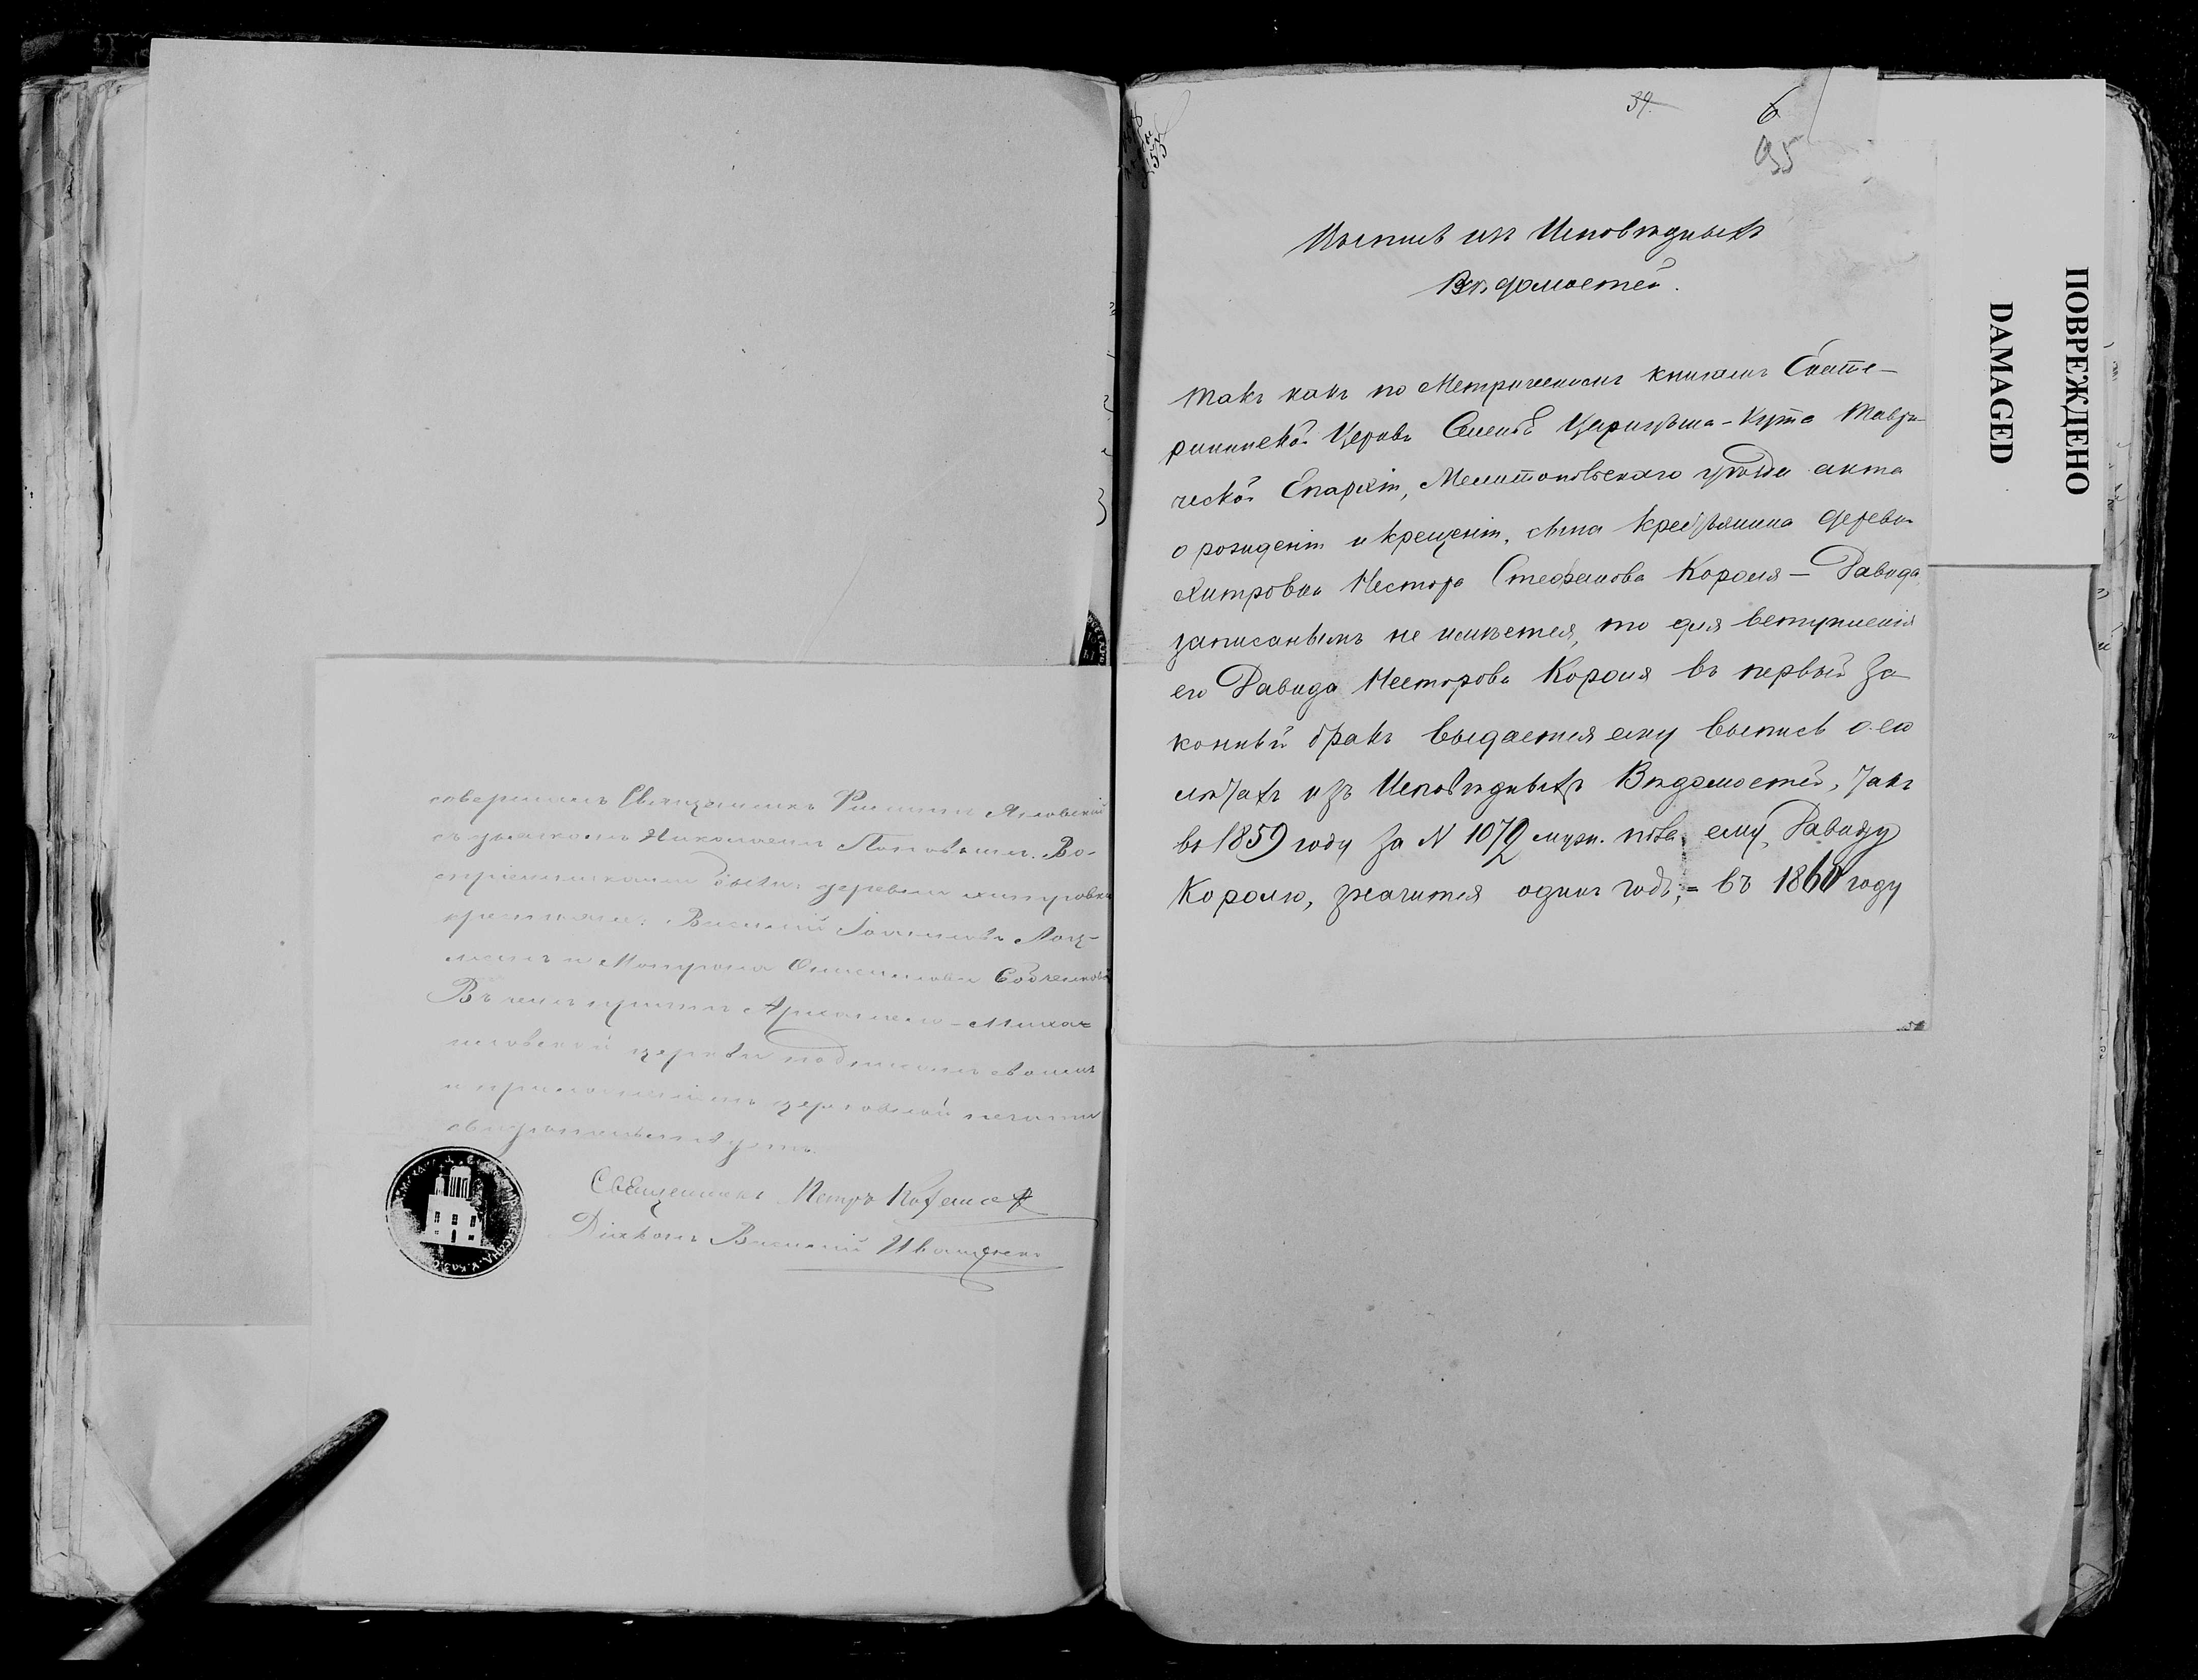 совершалъ Священникъ Филиппъ Яновскій
съ дьячкомъ Николаемъ Поповымъ. Во-
спріемниками были: деревни Хитровки
крестьяне: Василій
и Матрона
Въ чемъ причтъ Архангело-Михаи-
ловской церкви подписомъ своимъ
и приложеніемъ церковной печати
свидѣтельствуетъ.
Священникъ Петръ
Діаконъ Василій Иващенко
39.
6
95
Выпись изъ Исповѣдныхъ
Вѣдомостей.
Такъ какъ по Метрическимъ книгамъ Екате-
рининской Церкви Селенія Царицына-Кута Таври-
ческой Епархіи, Мелитопольскаго уѣзда акта
о рожденіи и крещеніи, сына крестьянина деревни
Хитровки Нестора Стефанова Короля – Давида
записаннымъ не имѣется, то для вступленія
его Давида Несторова Короля въ первый за-
конный бракъ выдается ему выпись о его
лѣтахъ изъ Исповѣдныхъ Вѣдомостей, такъ
въ 1859 году за N 1072 муж. пола, ему, Давиду
Королю, значится одинъ годъ; = въ 1860 году
ПОВРЕЖДЕНО
DAMAGED